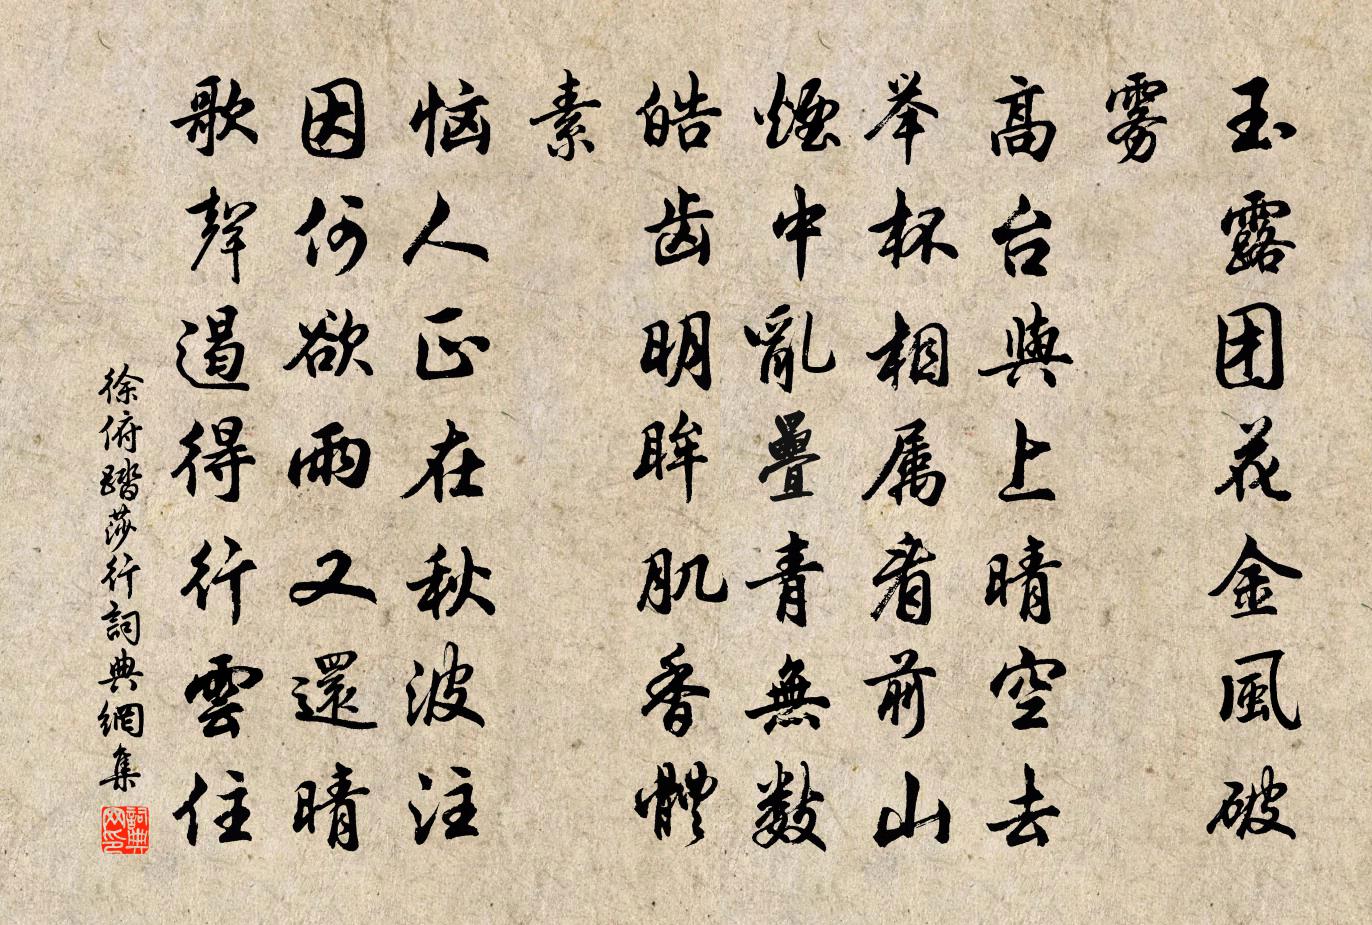 玉露团花金風破
雾
髙台與上晴空去
举杯相属看前山
煙中亂疊青無数
皓齿明眸肌香體
素
恼人正在秋波注
因何欲雨又還晴
歌聲遏得行雲住
徐俯踏莎行詞典網集
詞典网印